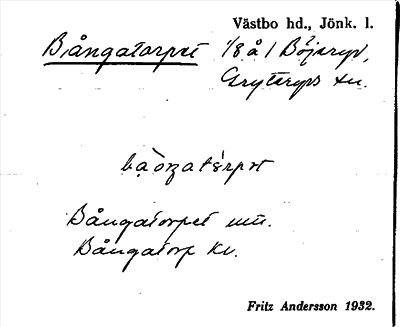 Västbo hd., Jönk. l.
Bångatorpet 1/8 å 1 Böjeryd,
Gryteryds sn.
Bångatorpet mu.
Bångatorp kv.
Fritz Andersson 1932.